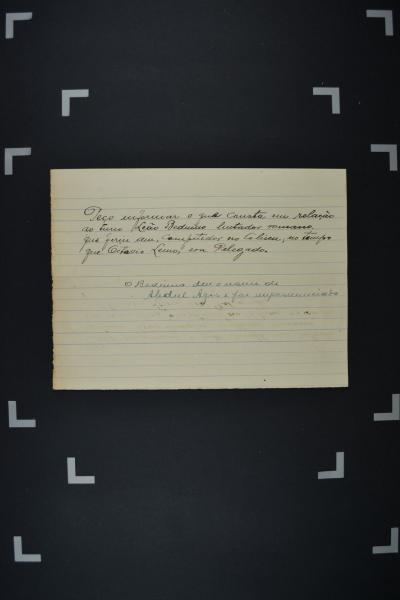 Peço informar o que consta em relação
ao turco Leão Beduino lutador romano,
que um competidor no Coliseu, no tempo
que Octavio Lemos, era Delegado.
O Beduino deu o nome de
Abdul Agis e foi